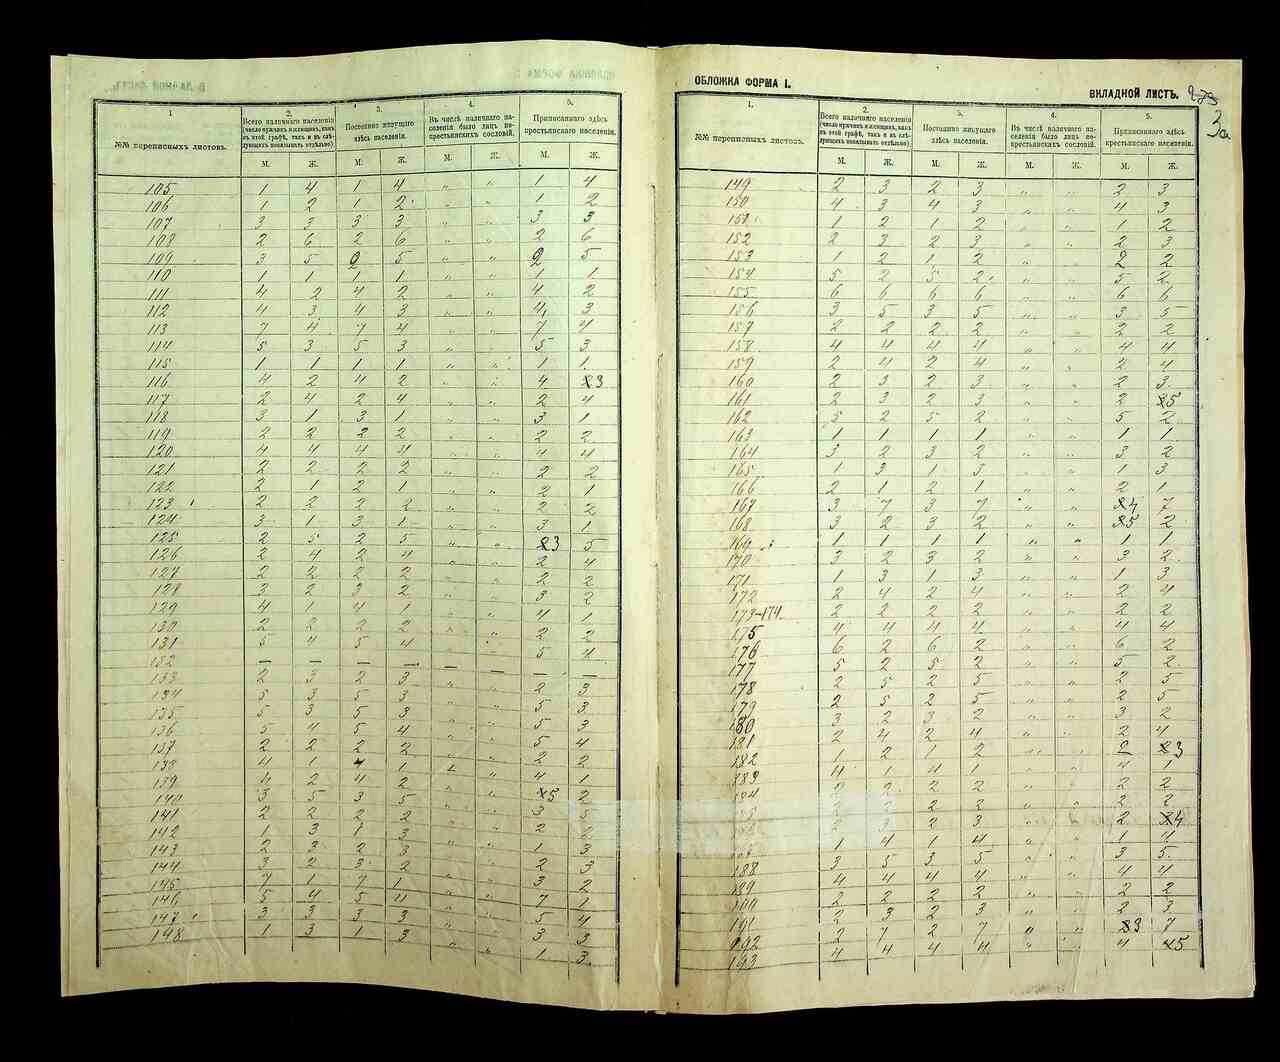 ОБЛОЖКА ФОРМА I.
ВКЛАДНОЙ ЛИСТЪ. 273
3а
1 2. 3. 4. 5.
№№ переписныхъ листовъ. Всего наличнаго населенія (число мужчинъ и женщинъ, какъ въ этой графѣ, такъ и въ слѣдующихъ показывать отдѣльно). Постоянно живущаго здѣсь населенія. Въ числѣ наличнаго населенія было лицъ некрестьянскихъ сословій. Приписаннаго здѣсь крестьянскаго населенія.
М. Ж. М. Ж. М. Ж. М. Ж.
105 1 4 1 4 „ „ 1 4
106 1 2 1 2 „ „ 1 2
107 3 3 3 3 „ „ 3 3
108 2 6 2 6 „ „ 2 6
109 3 5 2 5 „ „ 2 5
110 1 1 1 1 „ „ 1 1
111 4 2 4 2 „ „ 4 2
112 4 3 4 3 „ „ 4 3
113 7 4 7 4 „ „ 7 4
114 5 3 5 3 „ „ 5 3
115 1 1 1 1 „ „ 1 1
116 4 2 4 2 „ „ 4 3
117 2 4 2 4 „ „ 2 4
118 3 1 3 1 „ „ 3 1
119 2 2 2 2 „ „ 2 2
120 4 4 4 4 „ „ 4 4
121 2 2 2 2 „ „ 2 2
122 2 1 2 1 „ „ 2 1
123 2 2 2 2 „ „ 2 2
124 3 1 3 1 „ „ 3 1
125 2 5 2 5 „ „ 3 5
126 2 4 2 4 „ „ 2 4
127 2 2 2 2 „ „ 2 2
128 3 2 3 2 „ „ 3 2
129 4 1 4 1 „ „ 4 1
130 2 2 2 2 „ „ 2 2
131 5 4 5 4 „ „ 5 4
132 — — — — — — — —
133 2 3 2 3 „ „ 2 3
134 5 3 5 3 „ „ 5 3
135 5 3 5 3 „ „ 5 3
136 5 4 5 4 „ „ 5 4
137 2 2 2 2 „ „ 2 2
138 4 1 4 1 „ „ 4 1
139 4 2 4 2 „ „ 5 2
140 3 5 3 5 „ „ 3 5
141 2 2 2 2 „ „ 2 2
142 1 3 1 3 „ „ 1 3
143 2 3 2 3 „ „ 2 3
144 3 2 3 2 „ „ 3 2
145 7 1 7 1 „ „ 7 1
146 5 4 5 4 „ „ 5 4
147 3 3 3 3 „ „ 3 3
148 1 3 1 3 „ „ 1 3
1. 2. 3. 4. 5.
№№ переписныхъ листовъ. Всего наличнаго населенія (число мужчинъ и женщинъ, какъ въ этой графѣ, такъ и въ слѣдующихъ показывать отдѣльно). Постоянно живущаго здѣсь населенія. Въ числѣ наличнаго населенія было лицъ некрестьянскихъ сословій. Приписаннаго здѣсь крестьянскаго населенія.
М. Ж. М. Ж. М. Ж. М. Ж.
149 2 3 2 3 „ „ 2 3
150 4 3 4 3 „ „ 4 3
151 1 2 1 2 „ „ 1 2
152 2 3 2 3 „ „ 2 3
153 1 2 1 2 „ „ 2 2
154 5 2 5 2 „ „ 5 2
155 6 6 6 6 „ „ 6 6
156 3 5 3 5 „ „ 3 5
157 2 2 2 2 „ „ 2 2
158 4 4 4 4 „ „ 4 4
159 2 4 2 4 „ „ 2 4
160 2 3 2 3 „ „ 2 3
161 2 3 2 3 „ „ 2 5
162 5 2 5 2 „ „ 5 2
163 1 1 1 1 „ „ 1 1
164 3 2 3 2 „ „ 3 2
165 1 3 1 3 „ „ 1 3
166 2 1 2 1 „ „ 2 1
167 3 7 3 7 „ „ 4 7
168 3 2 3 2 „ „ 5 2
169 1 1 1 1 „ „ 1 1
170 3 2 3 2 „ „ 3 2
171 1 3 1 3 „ „ 1 3
172 2 4 2 4 „ „ 2 4
173-174 2 2 2 2 „ „ 2 2
175 4 4 4 4 „ „ 4 4
176 6 2 6 2 „ „ 6 2
177 5 2 5 2 „ „ 5 2
178 2 5 2 5 „ „ 2 5
179 2 5 2 5 „ „ 2 5
180 3 2 3 2 „ „ 3 2
181 2 4 2 4 „ „ 2 4
182 1 2 1 2 „ „ 2 3
183 4 1 4 1 „ „ 4 1
184 2 2 2 2 „ „ 2 2
2 2 2 2 „ „ 2 2
2 3 2 3 „ „ 2 4
1 4 1 4 „ „ 1 4
188 3 5 3 5 „ „ 3 5
189 4 4 4 4 „ „ 4 4
190 2 2 2 2 „ „ 2 2
191 2 3 2 3 „ „ 2 3
192 2 7 2 7 „ „ 3 7
193 4 4 4 4 „ „ 4 5